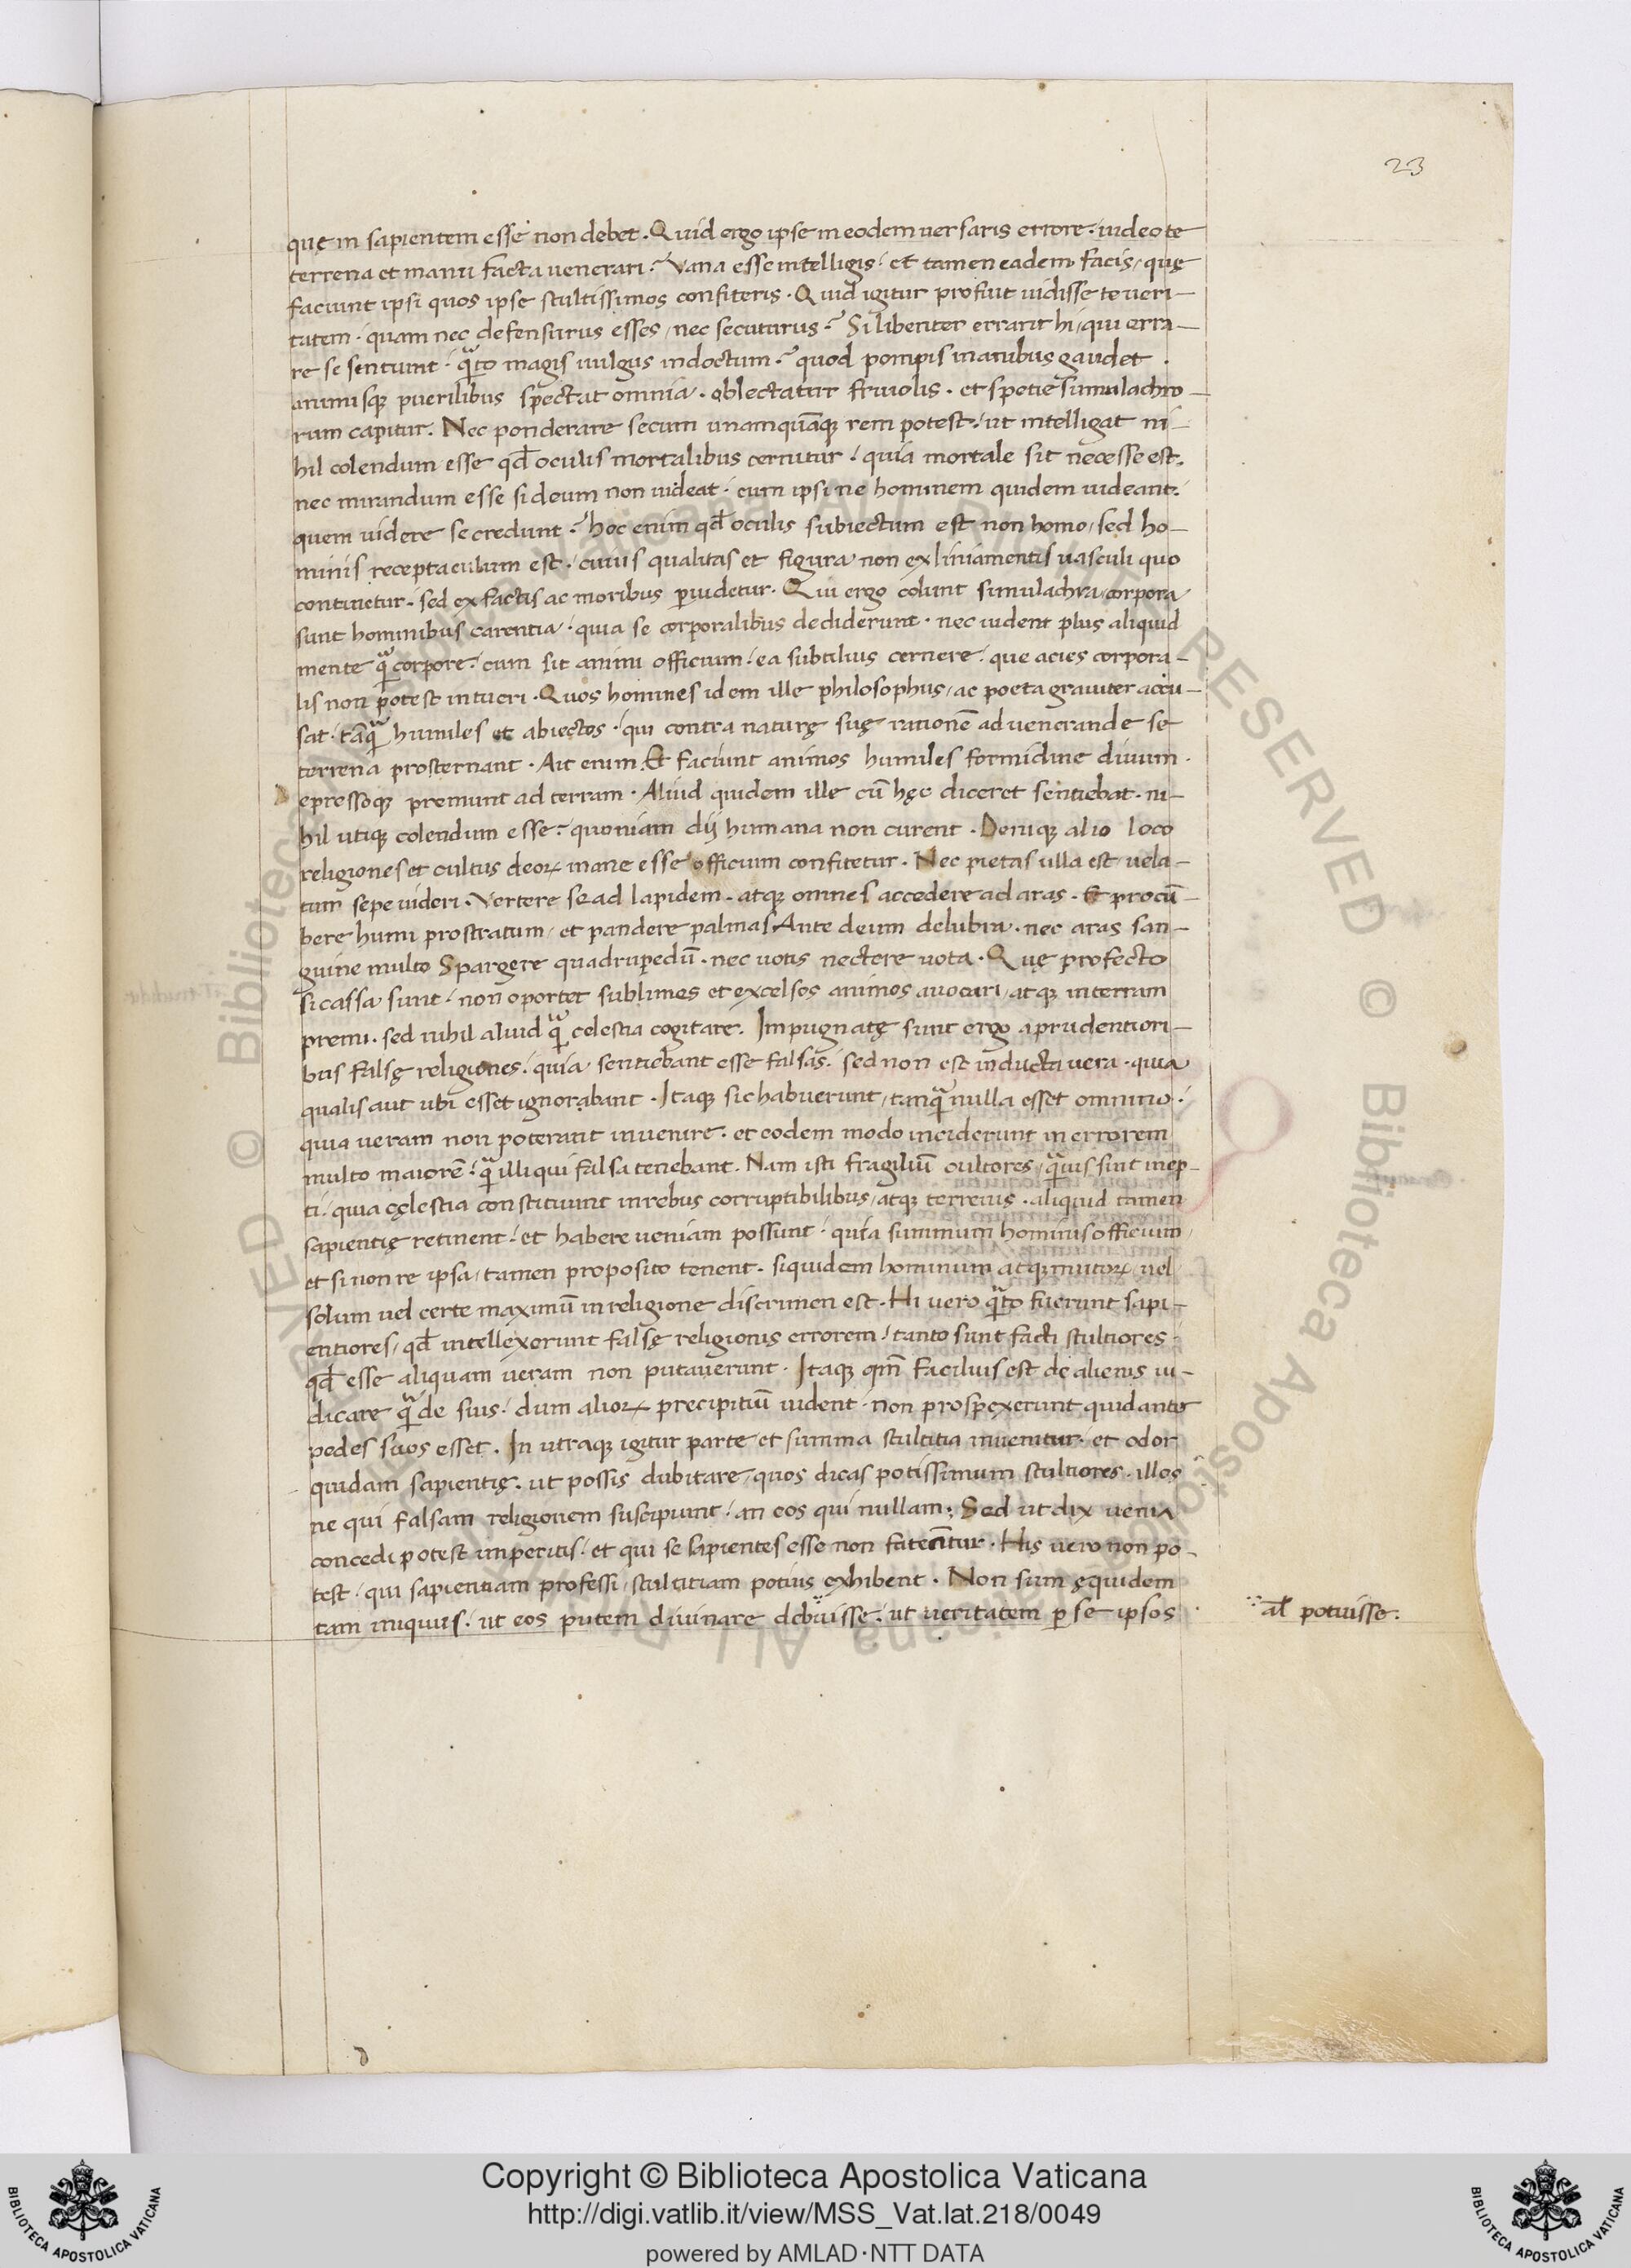 23
quę in sapientem esse non debet. Quid ergo ipse in eodem uersaris errore. uideo te
terrena et manu facta uenerari? Vana esse intelligis. et tamen eadem facis, quę
faciunt ipsi quos ipse stultissimos confiteris. Quid igitur profuit uidisse te ueri-
tatem. quam nec defensurus esses, nec secuturus? Si libenter errant hi, qui erra-
re se sentiunt. qͣ̃to magis uulgus indoctum? quod pompis inanibus gaudet.
animisqꝫ puerilibus spectat omnia. oblectatur friuolis. et spetie simulachro-
rum capitur. Nec ponderare secum unamquãqꝫ rem potest. ut intelligat ni-
hil colendum esse qđ oculis mortalibus cernitur. quia mortale sit necesse est.
nec mirandum esse si deum non uideat. cum ipsi ne hominem quidem uideant.
quem uidere se credunt? hoc enim qđ oculis subiectum est non homo, sed ho-
minis receptaculum est. cuius qualitas et figura non ex liniamentis uasculi quo
continetur. sed ex factis ac moribus ꝑuidetur. Qui ergo colunt simulachra, corpora
sunt hominibus carentia. quia se corporalibus dediderunt. nec uident plus aliquid
mente qͣ̃ corpore. cum sit animi officium. ea subtilius cernere. que acies corpora-
lis non potest intueri. Quos homines idem ille philosophus, ac poeta grauiter accu-
sat. tãqͣ̃ humiles et abiectos. qui contra naturę suę rationẽ ad uenerande se
terrena prosternant. Ait enim. Et faciunt animos humiles formidine diuum.
epressoqꝫ premunt ad terram. Aliud quidem ille cũ hęc diceret sentiebat. ni-
hil utiqꝫ colendum esse. quoniam dij humana non curent. Deniqꝫ alio loco
religiones et cultus deoꝝ inane esse officium confitetur. Nec pietas ulla est, uela-
tum sepe uideri. Vertere se ad lapidem. atqꝫ omnes accedere ad aras. Et procũ-
bere humi prostratum, et pandere palmas Ante deum delubra. nec aras san-
guine multo Spargere quadrupedũ. nec uotis nectere uota. Quę profecto
si cassa sunt. non oportet sublimes et excelsos animos auocari, atqꝫ in terram
premi. sed nihil aliud qͣ̃ celestia cogitare. Impugnatę sunt ergo a prudentiori-
bus falsę religiones. quia sentiebant esse falsas. sed non est inducta uera. quia
qualis aut ubi esset ignorabant. Itaqꝫ sic habuerunt, tanqͣ̃ nulla esset omnino.
quia ueram non poterant inuenire. et eodem modo inciderunt in errorem
multo maiorẽ. qͣ̃ illi qui falsa tenebant. Nam isti fragiliũ cultores, qͣ̃uis sint inep-
ti. quia cęlestia constituunt in rebus corruptibilibus, atqꝫ terrenis. aliquid tamen
sapientię retinent. et habere ueniam possunt. quia summum hominis officium,
et si non re ipsa, tamen proposito tenent. siquidem hominum atqꝫ mutoꝝ, uel
solum uel certe maximũ in religione discrimen est. Hi uero qͣ̃to fuerunt sapi-
entiores, qđ intellexerunt falsę religionis errorem. tanto sunt facti stultiores.
qđ esse aliquam ueram non putauerunt. Itaqꝫ qm̃ facilius est de alienis iu-
dicare qͣ̃ de suis. dum alioꝝ precipitiũ uident. non prospexerunt quid ante
pedes suos esset. In utraqꝫ igitur parte et summa stultitia inuenitur. et odor
quidam sapientię. ut possis dubitare, quos dicas potissimum stultiores. illos
ne qui falsam religionem suscipiunt. an eos qui nullam. Sed ut dix uenia
concedi potest imperitis. et qui se sapientes esse non fatentur. His uero non po-
test. qui sapientiam professi, stultitiam potius exhibent. Non sum ęquidem
tam iniquus. ut eos putem diuinare debuisse. ut ueritatem ꝑ se ipsos
al̃ potuisse.
Copyright © Biblioteca Apostolica Vaticana
http://digi.vatlib.it/view/MSS_Vat.lat.218/0049
powered by AMLAD·NTT DATA
BIBLIOTECA APOSTOLICA VATICANA
BIBLIOTECA APOSTOLICA VATICANA